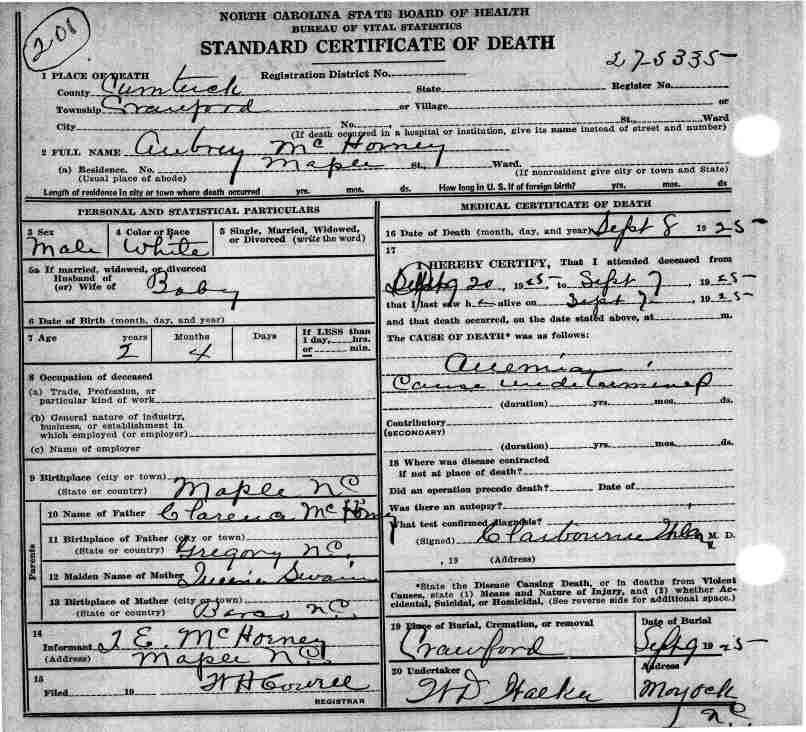 201
NORTH CAROLINA STATE BOARD OF HEALTH
BUREAU OF VITAL STATISTICS
STANDARD CERTIFICATE OF DEATH
275335
1 PLACE OF DEATH Registration District No.
County Currituck State Register No.
Township Crawford or Village or
City No. St., Ward
(If death occurred in a hospital or institution, give its name instead of street and number)
2 FULL NAME Aubrey McHorney
(a) Residence. No. Maple St., Ward.
(Usual place of abode) (If nonresident give city or town and State)
Length of residence in city or town where death occurred yrs. mos. ds. How long in U. S. if of foreign birth? yrs. mos. ds.
PERSONAL AND STATISTICAL PARTICULARS
3 Sex 4 Color or Race 5 Single, Married, Widowed,
or Divorced (write the word)
Male White
5a If married, widowed, or divorced
Husband of
(or) Wife of Baby
6 Date of Birth (month, day, and year)
7 Age years Months Days If LESS than
1 day, hrs.
or min.
2 4
8 Occupation of deceased
(a) Trade, Profession, or
particular kind of work
(b) General nature of industry,
business, or establishment in
which employed (or employer)
(c) Name of employer
9 Birthplace (city or town)
(State or country) Maple NC
Parents
10 Name of Father Clarence McHorney
11 Birthplace of Father (city or town)
(State or country) Gregory NC.
12 Maiden Name of Mother Swain
13 Birthplace of Mother (city or town)
(State or country) N.C.
14
Informant T. E. McHorney
(Address) Maple NC
15
Filed 19
REGISTRAR
MEDICAL CERTIFICATE OF DEATH
16 Date of Death (month, day, and year) Sept 8 1925
17
I HEREBY CERTIFY, That I attended deceased from
20, 1925 to Sept 7, 1925
that I last saw h alive on Sept 7, 1925
and that death occurred, on the date stated above, at m.
The CAUSE OF DEATH* was as follows:
Anemia
Cause undetermined
(duration) yrs. mos. ds.
Contributory
(SECONDARY)
(duration) yrs. mos. ds.
18 Where was disease contracted
if not at place of death?
Did an operation precede death? Date of
Was there an autopsy?
What test confirmed diagnosis?
(Signed) M. D.
, 19 (Address)
*State the Disease Causing Death, or in deaths from Violent
Causes, state (1) Means and Nature of Injury, and (2) whether Ac-
cidental, Suicidal, or Homicidal. (See reverse side for additional space.)
19 Place of Burial, Cremation, or removal Date of Burial
Crawford Sept 9 1925
20 Undertaker Address
W D Walker Moyock
N.C.